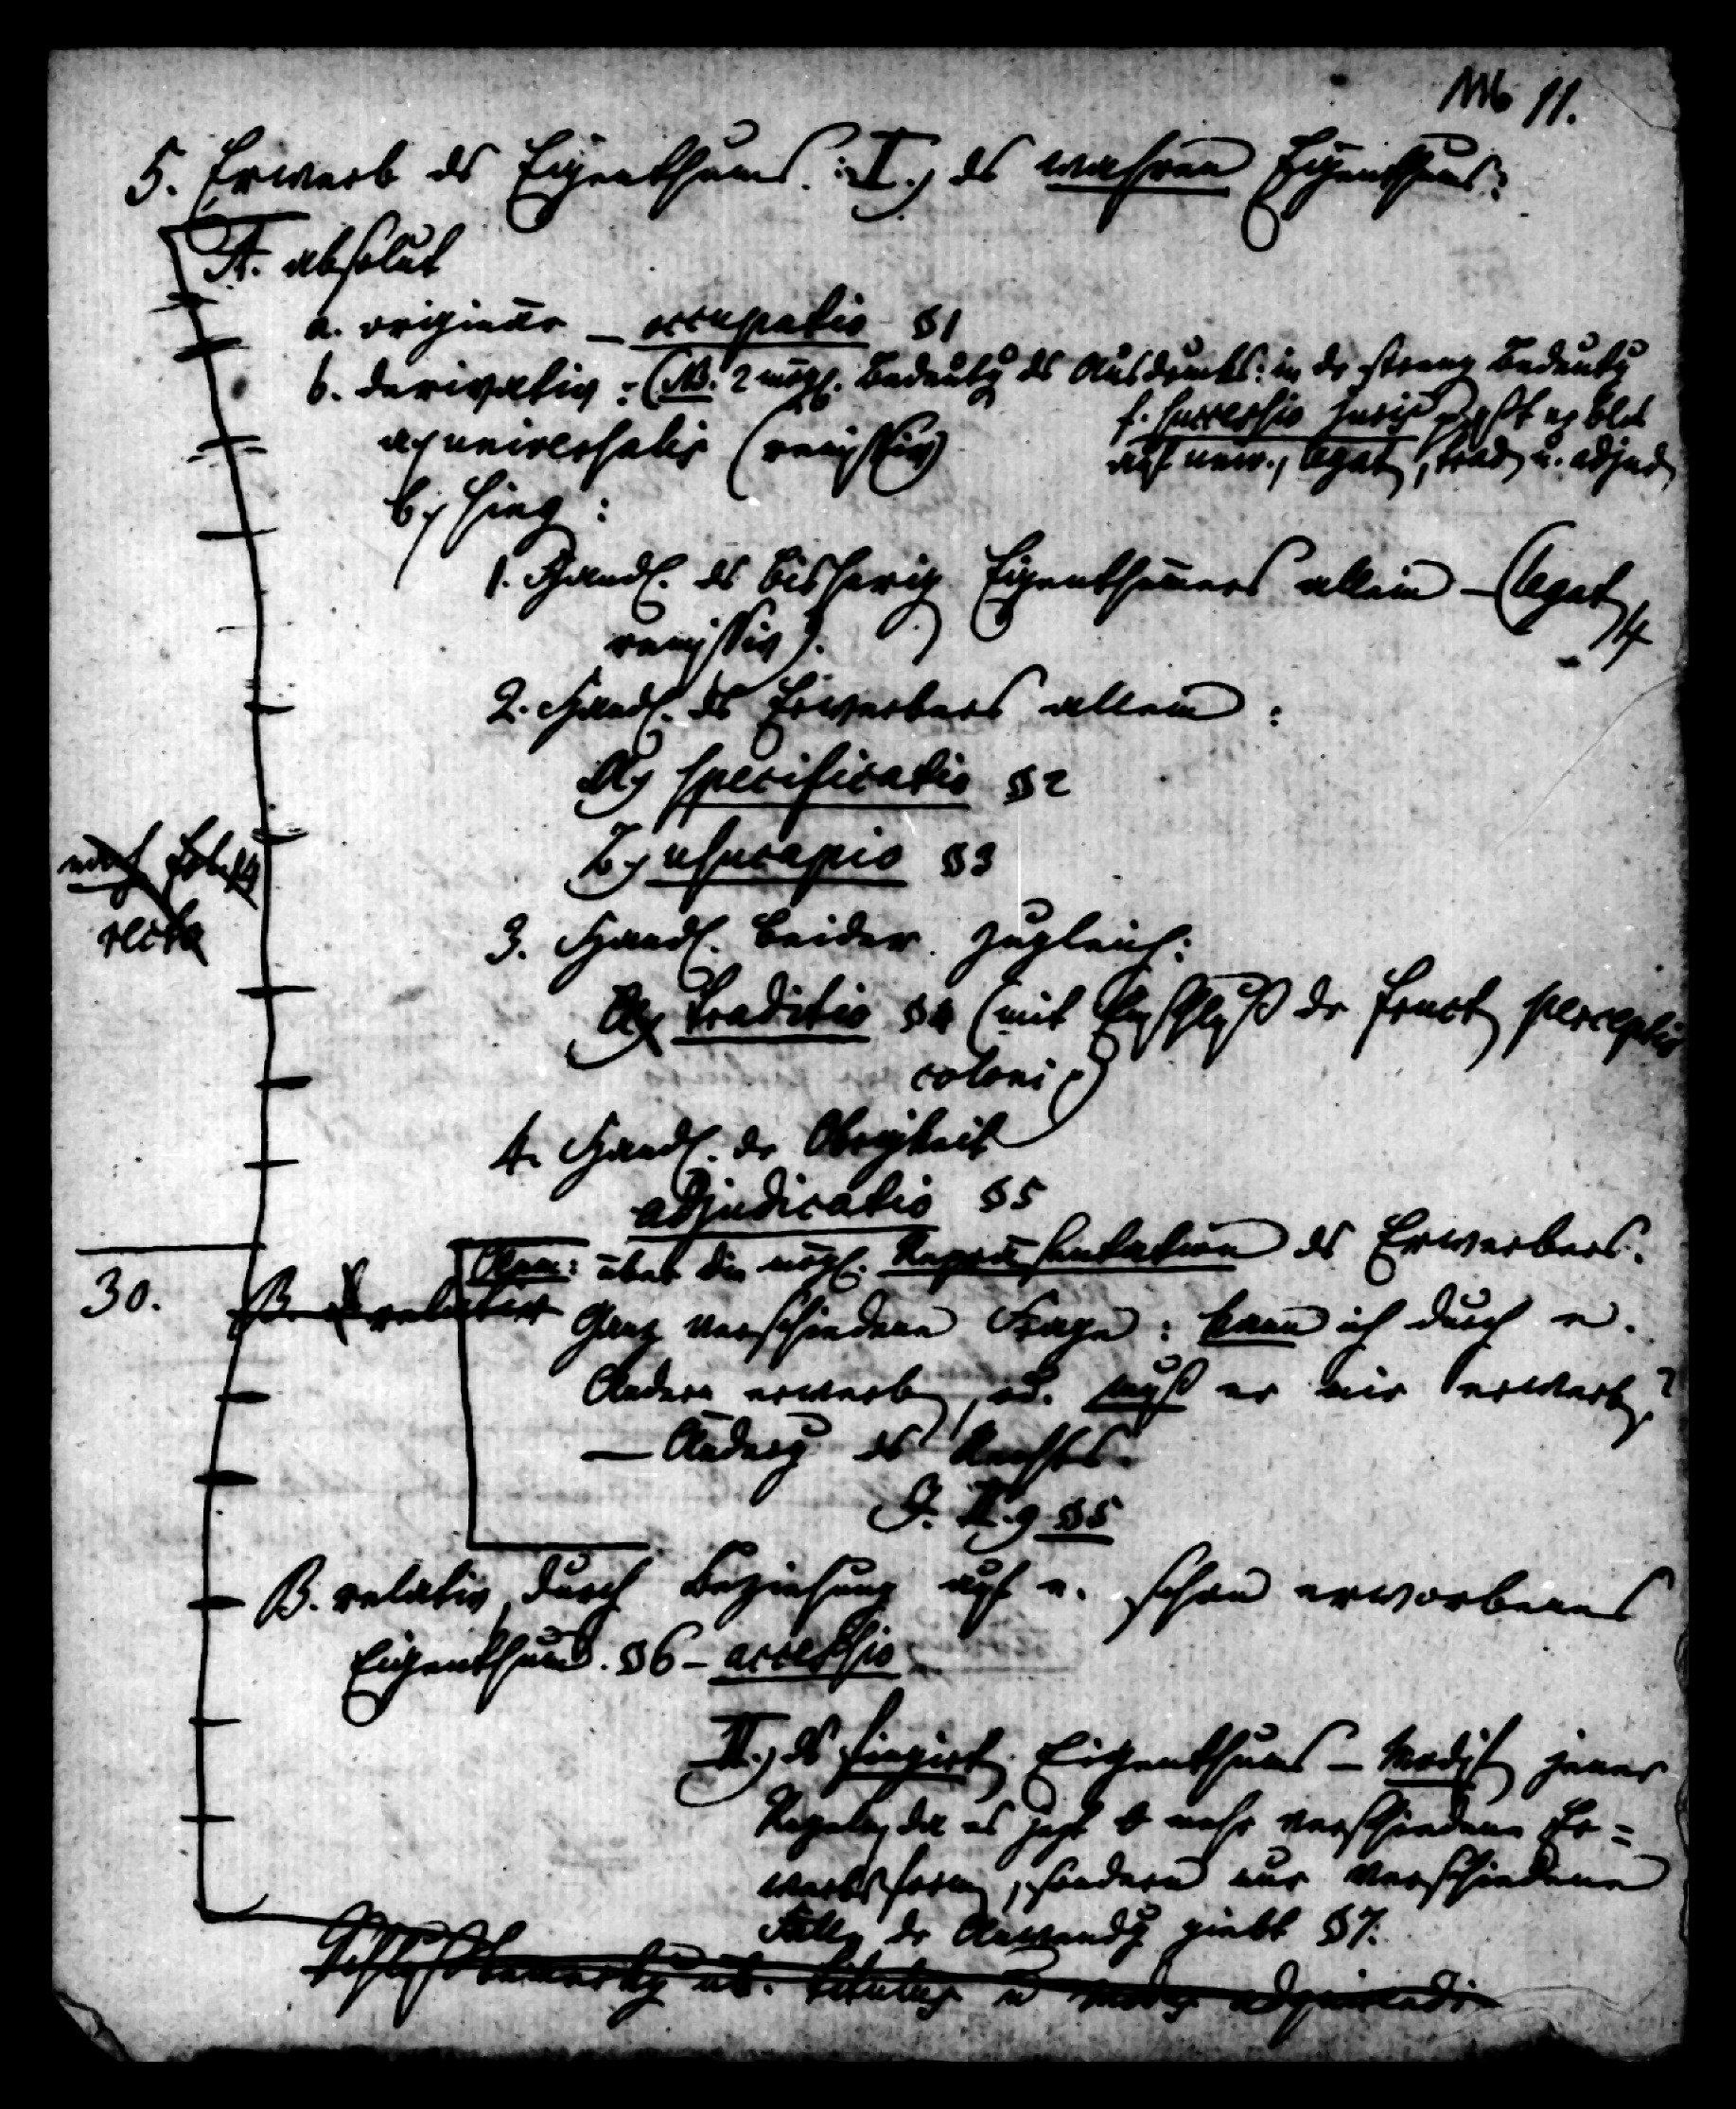 11.
5. Erwerb ds Eigenthums. I.) ds wahren Eigenthums:
A. absolut
a. originär – occupatio §1
b. derivativ: (NB. 2 mögl. Bedeutg ds Ausdrucks: in dr streng Bedeutg
f. successio juris paßt es blos
auf univ., legat, trad. u. adjud.
a) universalis (remissiv)
b) sing:
1. Handl. ds bisherig Eigenthümers allein – (legat,
remissiv).
2. Handl. ds Erwerbers allein:
A) specificatio §2
B) usucapio §3
3. Handl. beider zugleich:
traditio §4 (mit Einschluß dr fruct perceptio
coloni)
4. Handl. dr Obrigkeit
adjudicatio §5
30.
B. relativ
Anm: über die mögl. Repräsentation ds Erwerbers.
Ganz verschiedene Frage: kann ich durch e.
Andern erwerb, od. muß er mir erwerb?
– Änderg ds Rechts.
J. II. 9 §5
B. relativ, durch Beziehung auf e. schon erworbenes
Eigenthum. §6 – accessio
II.) ds fingirt Eigenthums – Modif jener
Regeln, da es jezt mehr verschiedene Er=
werbsform, sondern nur verschiedene
Fälle dr Anwendg giebt §7.
Schlußbemerkg üb. titulus u modus adquirendi